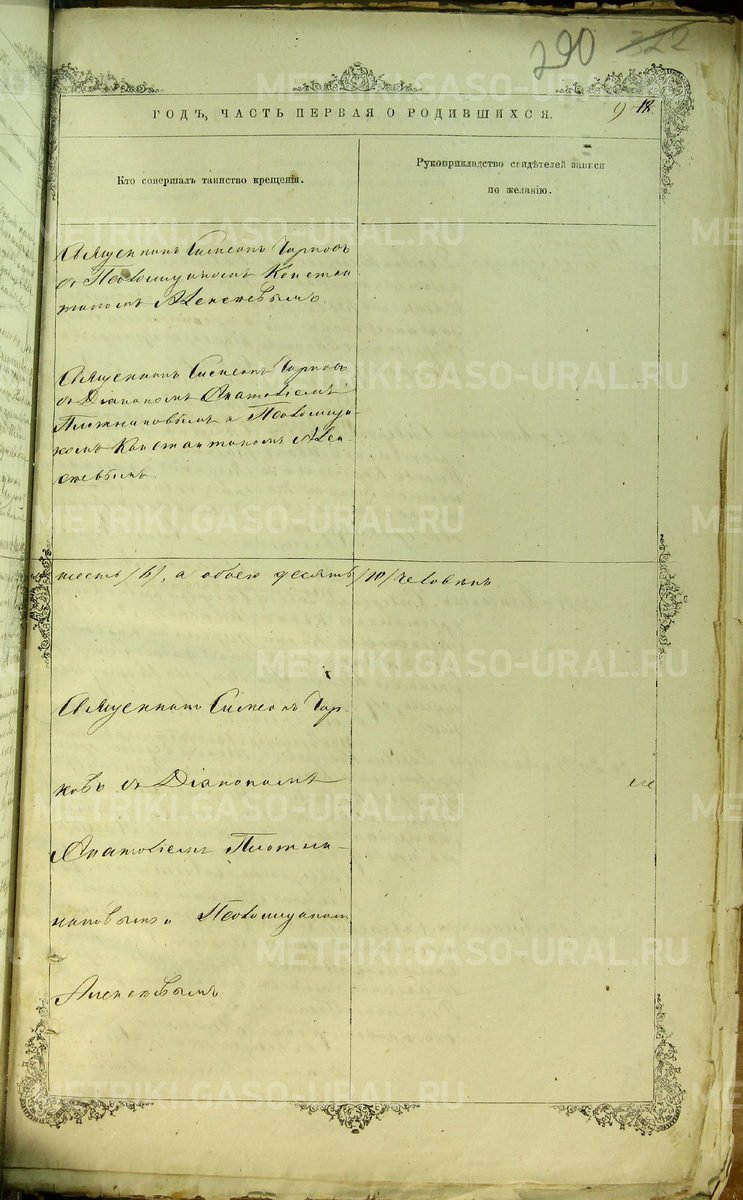 290 322
ГОДЪ, ЧАСТЬ ПЕРВАЯ О РОДИВШИХСЯ.
9 18.
Кто совершалъ таинство крещенія.
Рукоприкладство свидѣтелей записи
по желанію.
Священникъ Симеонъ Чарковъ
съ Псаломщикомъ Констан
тиномъ Алексѣевымъ.
Священникъ Симеонъ Чарковъ
съ Діакономъ Анатоліемъ
Плотниковымъ и Псаломщи
комъ Константиномъ Алек
сѣевымъ.
шесть /6/, а обоего десять /10/ человѣкъ
Священникъ Симеонъ Чар
ковъ съ Діакономъ
Анатоліемъ Плотни-
ковымъ и Псаломщикомъ
Алексѣевымъ
METRIKI.GASO-URAL.RU